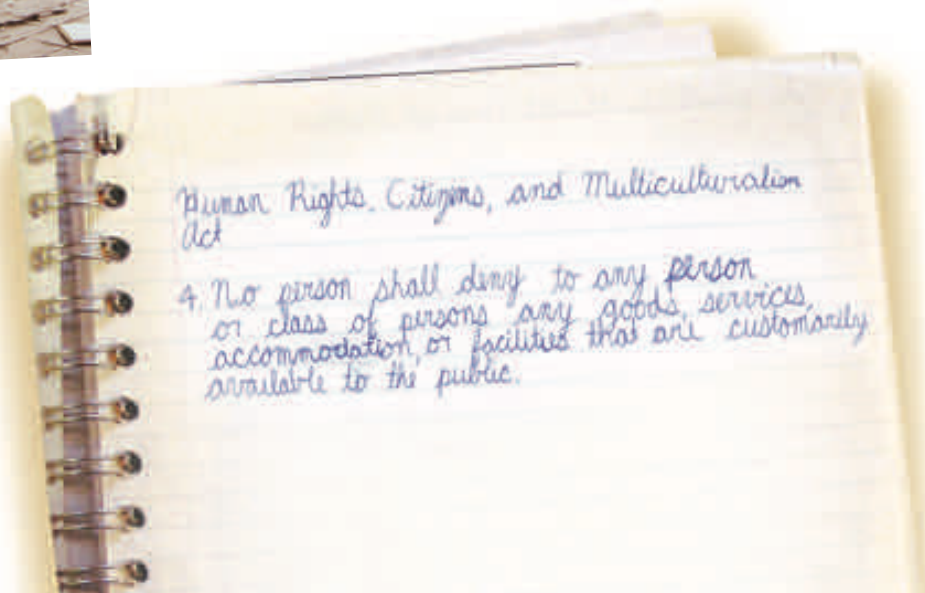 Human Rights, Citizens, and Multiculturalism
Act
4. No person shall deny to any person
or class of persons any goods, services,
accommodation, or facilities that are customarily
available to the public.